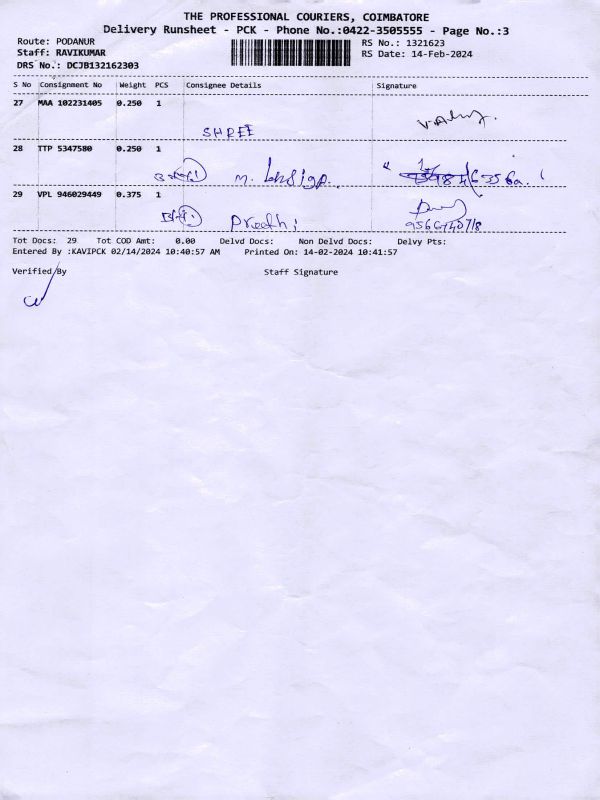 THE PROFESSIONAL COURIERS, COIMBATORE
Delivery Runsheet - PCK - Phone No.:0422-3505555 - Page No.:3
Route: PODANUR
Staff: RAVIKUMAR
DRS No.: DCJB132162303
RS No.: 1321623
RS Date: 14-Feb-2024
S No Consignment No Weight PCS Consignee Details Signature
27 MAA 102231405 0.250 1
SHREE
28 TTP 5347580 0.250 1
M.
29 VPL 946029449 0.375 1
Preethi
Tot Docs: 29 Tot COD Amt: 0.00 Delvd Docs: Non Delvd Docs: Delvy Pts:
Entered By :KAVIPCK 02/14/2024 10:40:57 AM Printed On: 14-02-2024 10:41:57
Verified By Staff Signature